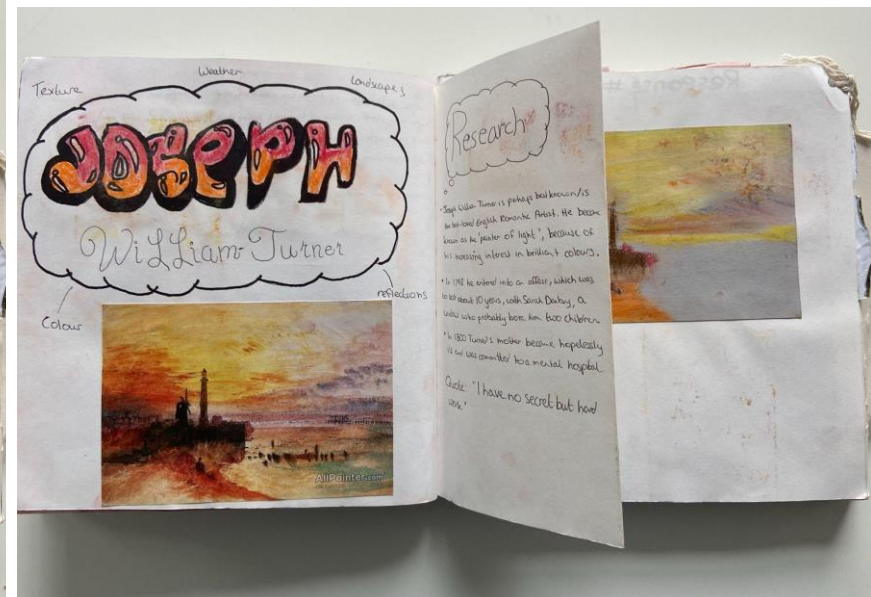 Weather
Texture
Landscapes
JOSEPH
William Turner
Colour
reflections
AllPainter.com
Research
• Joseph William Turner is perhaps best known/is
the best-loved English Romantic Artist. He became
known as the 'painter of light', because of
his increasing interest in brilliant colours.
• In 1798 he entered into an affair, which was
to last about 10 years, with Sarah Danby, a
widow who probably bore him two children
• In 1800 Turner's mother became hopelessly
ill and was committed to a mental hospital
Quote: "I have no secret but hard
work."
Response #